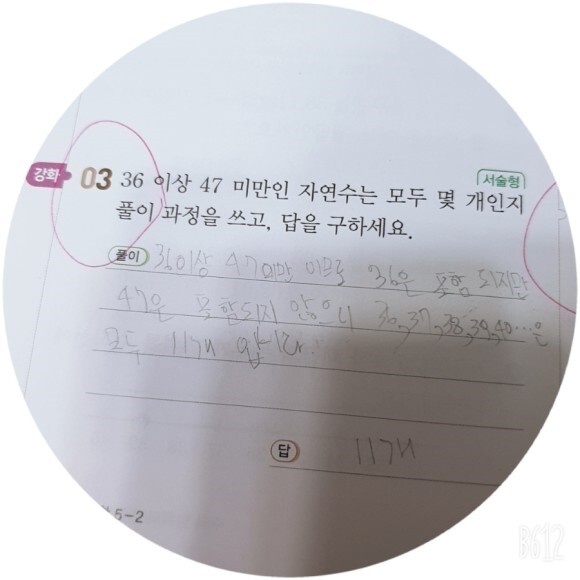 강화 03 36 이상 47 미만인 자연수는 모두 몇 개인지 서술형
풀이 과정을 쓰고, 답을 구하세요.
풀이 36이상 47미만 이므로 36은 포함 되지만
47은 포함되지 않으니 36,37,38,39,40…은
모두 11개 입니다.
답 11개
5-2
B612